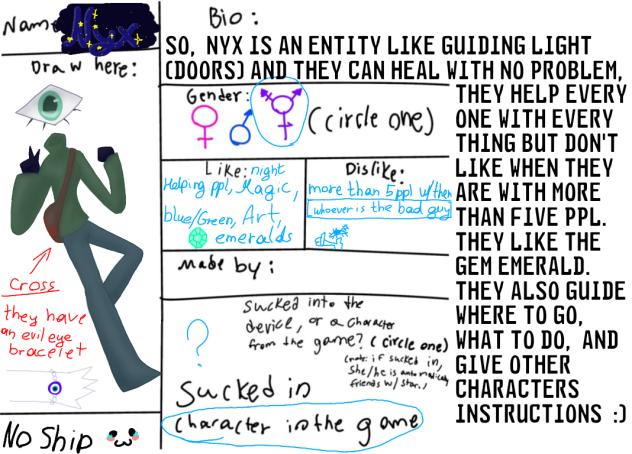 Name: Nyx
Draw here:
Cross
they have
an evil eye
bracelet
No Ship
Bio:
SO, NYX IS AN ENTITY LIKE GUIDING LIGHT
(DOORS) AND THEY CAN HEAL WITH NO PROBLEM,
THEY HELP EVERY
ONE WITH EVERY
THING BUT DON'T
LIKE WHEN THEY
ARE WITH MORE
THAN FIVE PPL.
THEY LIKE THE
GEM EMERALD.
THEY ALSO GUIDE
WHERE TO GO,
WHAT TO DO, AND
GIVE OTHER
CHARACTERS
INSTRUCTIONS :)
Gender:
(circle one)
Like: night
Helping ppl, Magic,
blue/Green, Art,
emeralds
Dislike:
more than 5ppl w/them
whoever is the bad guy
Made by:
?
Sucked into the
device, or a character
from the game? (circle one)
(note: if sucked in,
She/he is automatically
friends w/ Star.)
Sucked in
character in the game